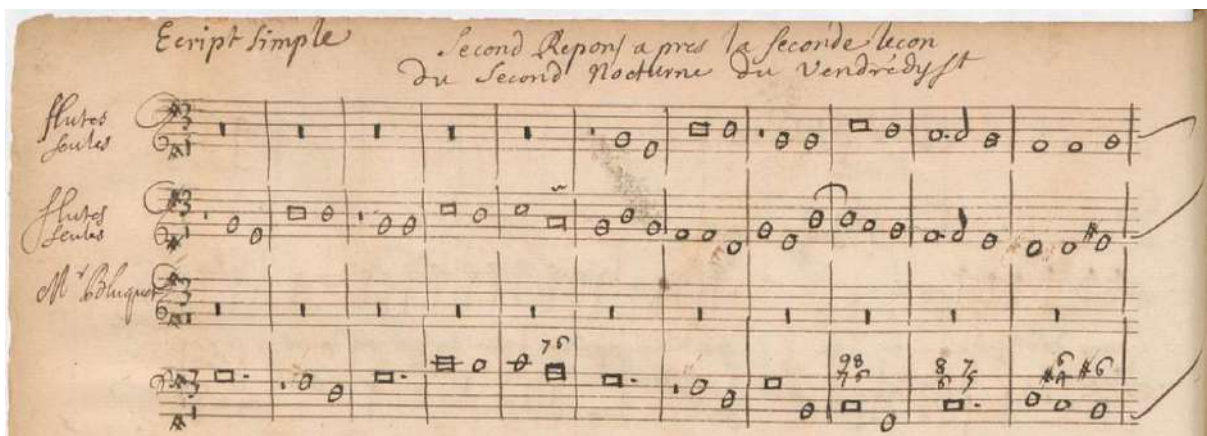 Ecript simple
Second Repons apres la seconde lecon
du Second Nocturne du Vendredy st
flutes
seules
flutes
seules
Mr
7 6
9 8 8 7 6 # 6
7 6 6 5 # 4